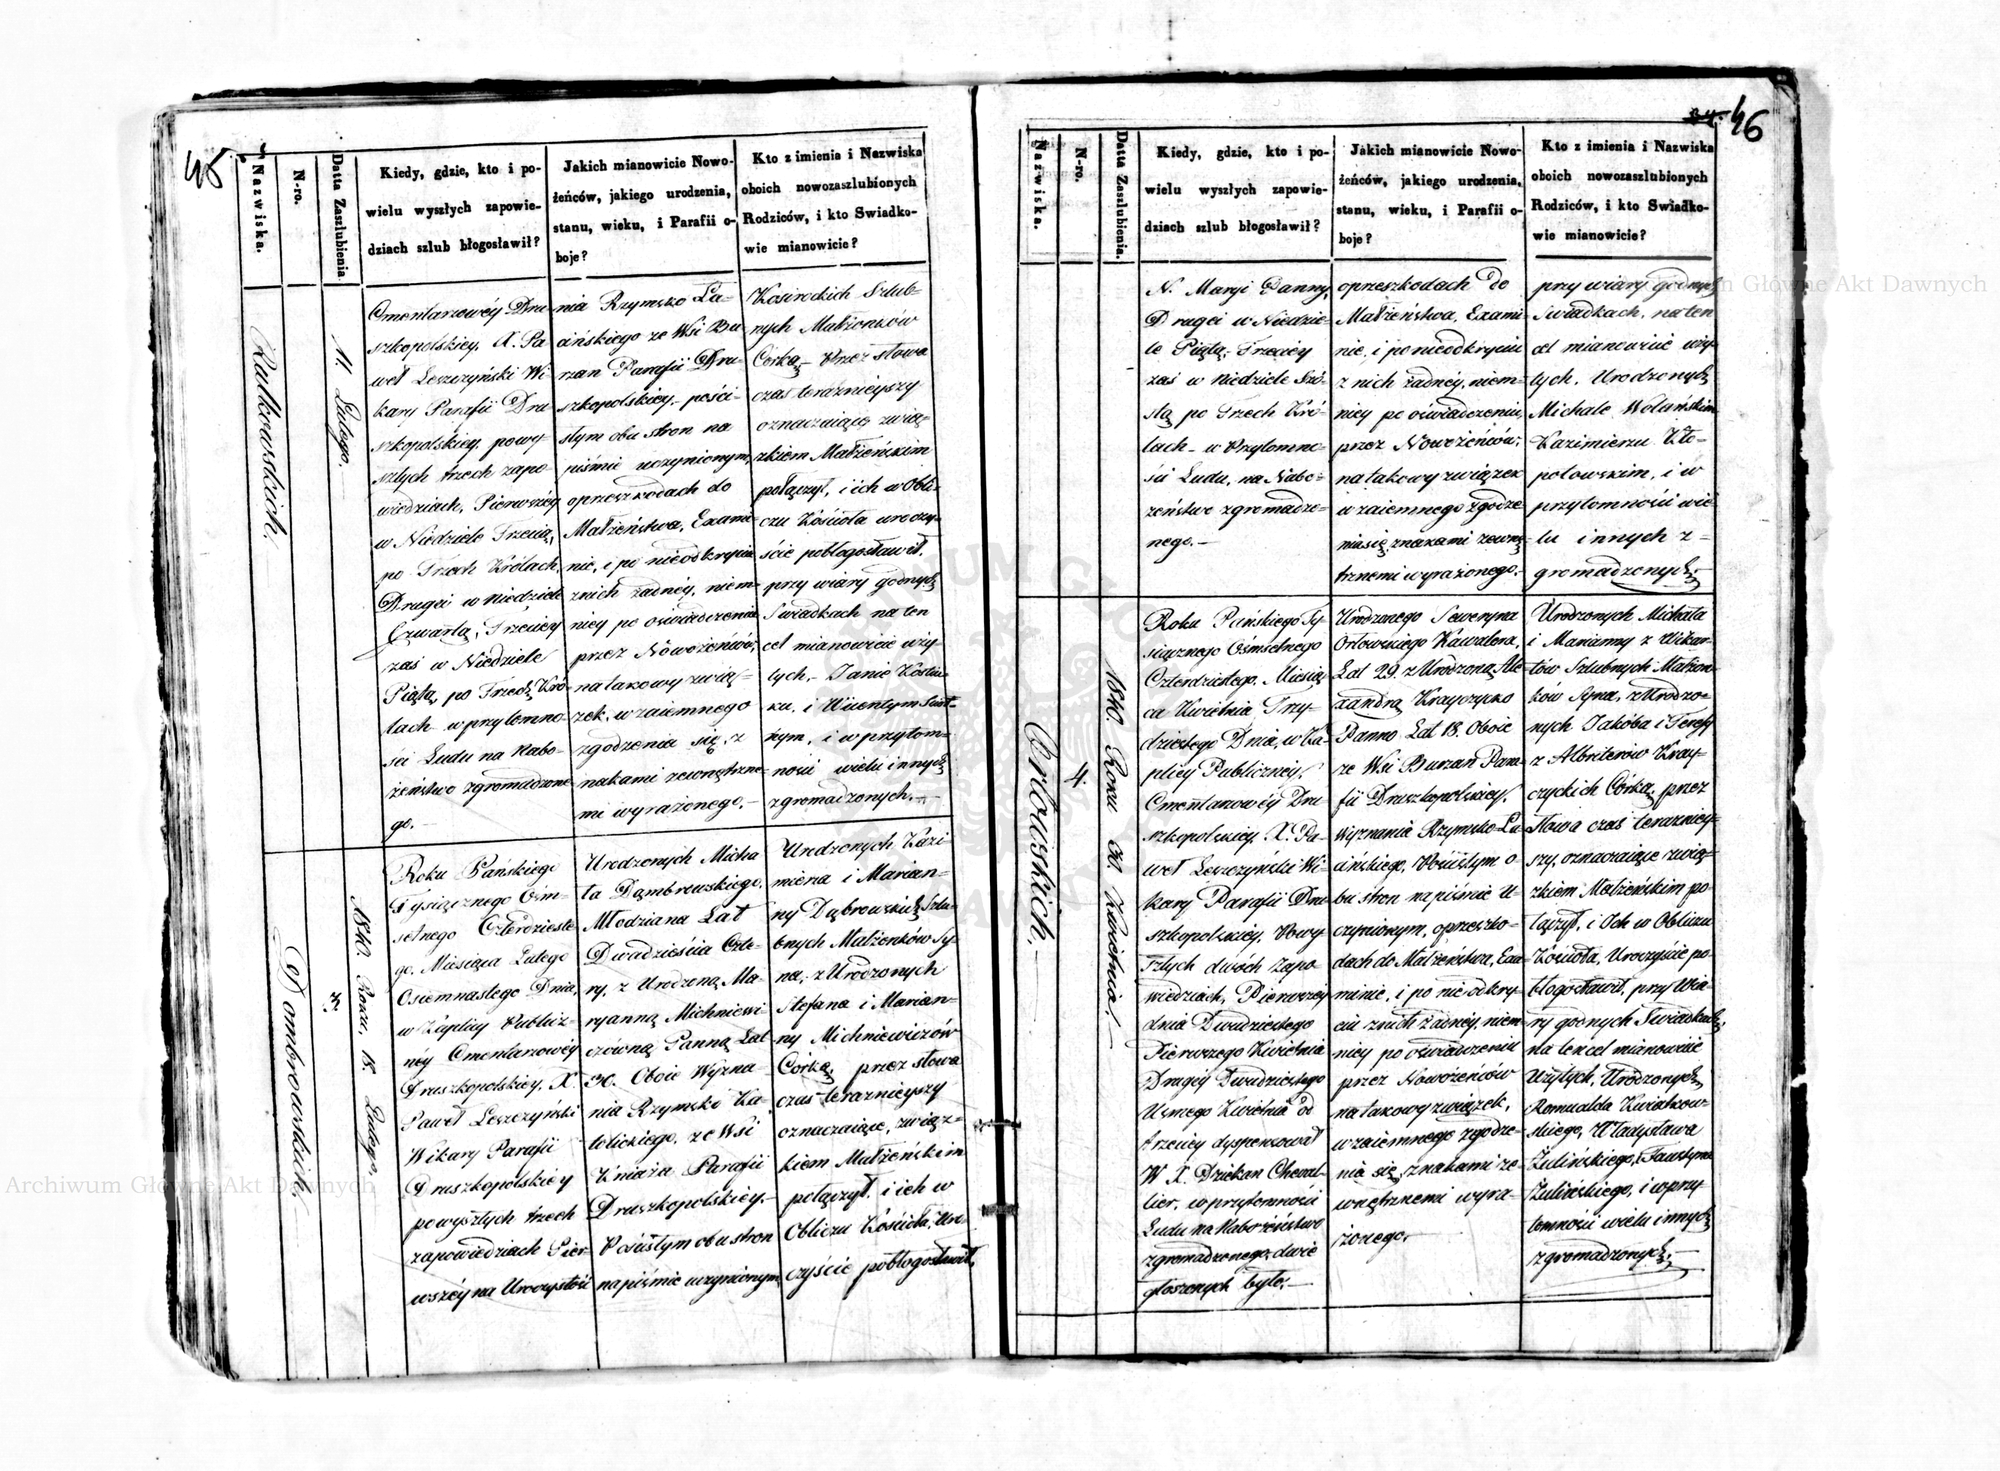 45
Nazwiska.
N-ro.
Datta Zaszlubienia
Kiedy, gdzie, kto i po-
wielu wyszłych zapowie-
dziach szlub błogosławił?
Jakich mianowicie Nowo-
żeńców, jakiego urodzenia,
stanu, wieku, i Parafii o-
boje?
Kto z imienia i Nazwiska
oboich nowozaszlubionych
Rodziców, i kto Swiadko-
wie mianowicie?
Rutkowskich.
11. Lutego.
Cmentarzowéy Dru-
szkopolskiey. X. Pa-
weł Leszczyński Wi-
kary Parafii Dru-
szkopolskiey, powy-
szłych trzech zapo-
wiedziach, Pierwszéy
w Niedziele Trzecią,
po Trzech Królach,
Drugei w Niedziele
Czwartą, Trzeciey
zaś w Niedziele
Piątą, po Trzech Kró-
lach w przytomno-
ści Ludu na Nabo-
żeństwo zgromadzone-
go.—
nia Rzymsko La-
cińskiego ze Wsi Bu-
rzan Parafii Dru-
szkopolskiey,- pości-
słym obu stron na
piśmie uczynionym,
opreszkodach do
Małżeństwa, Exami-
nie, i po nieodkryciu
znich żadnéy, niem-
niey po oswiadczeniu
przez Nowożeńców,
na takowy zwią-
zek, wzaiemnego
zgodzenia się, z
nakami zewnętrzne-
mi wyrażonego.—
Szlub-
nych Małżonków
Córką,- Przez słowa
czas teraźnieyszy
oznaczaiące zwią-
zkiem Małżeńskim
połączył, i ich w Obli-
czu Kościoła uroczy-
ście pobłogosławił,
przy wiary godnych
Swiadkach na ten
cel mianowicie uży-
tych,-
ku, i Wincentym
nym, i w przytom-
ności wielu innych
zgromadzonych.—
Dombrowskich.
3.
1840. Roku. 18. Lutego.
Roku Pańskiego
Tysiącznego Ośm-
setnego Czterdzieste-
go, Miesiąca Lutego
Osiemnastego Dnia,
w Kaplicy Publicz-
néy Cmentarzowéy
Druszkopolskiey, X.
Paweł Leszczyński
Wikary Parafii
Druszkopolskiey
powyszłych trzech
zapowiedziach Pier-
wszéy na Uroczystość
Urodzonych Micha-
ła Dąmbrowskiego,
Młodziana Lat
Dwadzieścia Czte-
ry, z Urodzoną Ma-
ryanną Michniewi-
czówną Panną Lat
30. Oboie Wyzna-
nia Rzymsko Ka-
tolickiego, ze Wsi
Kniaża Parafii
Druszkopolskiey.—
Pościsłym obu stron
na piśmie uczynionym,
Urodzonych Kazi-
mierza i Marian-
ny Dąbrowskich Szlu-
bnych Małżonków Sy-
na, z Urodzonych
Stefana i Marian-
ny Michniewiczów
Córką, przez słowa
czas teraznieyszy
oznaczaiące, związ-
kiem Małżeńskim
połączył, i ich w
Obliczu Kościoła, Uro-
czyście pobłogosławił,
34. 46
Nazwiska.
N-ro.
Datta Zaszlubienia.
Kiedy, gdzie, kto i po-
wielu wyszłych zapowie-
dziach szlub błogosławił?
Jakich mianowicie Nowo-
żeńców, jakiego urodzenia,
stanu, wieku, i Parafii o-
boje?
Kto z imienia i Nazwiska
oboich nowozaszlubionych
Rodziców, i kto Swiadko-
wie mianowicie?
N. Maryi Panny,
Drugei w Niedzie-
le Piątą, Trzeciey
zaś w Niedziele Szó-
stą po Trzech Kró-
lach - w Przytomno-
ści Ludu, na Nabo-
żeństwo zgromadzo-
nego.—
opreszkodach do
Małżeństwa, Exami-
nie, i po nieodkryciu
z nich żadnéy, niem-
niey po oświadczeniu,
przez Nowożeńców,
na takowy związek
wzaiemnego zgodze-
nia się, znakami zewnę-
trznemi wyrażonego.—
przy wiary godnych
Swiadkach, na ten
cel mianowicie uży-
tych, Urodzonych
Michale Wolańskim
Kazimierzu Kło-
potowskim, i w
przytomności wie-
lu innych z-
gromadzonych.—
Orłowskich.—
4.
1840. Roku 30. Kwietnia.
Roku Pańskiego Ty-
siącznego Ośmsetnego
Czterdziestego, Miesią-
ca Kwietnia Trzy-
dziestego Dnia, w Ka-
plicy Publiczney,
Cmentarzowéy Dru-
szkopolskiey, X. Pa-
weł Leszczyński Wi-
kary Parafii Dru-
szkopolskiey, Powy-
szłych dwóch zapo-
wiedziach, Pierwszey
dnia Dwudziestego
Pierwszego Kwietnia
Drugiey Dwudziestego
Usmego Kwietnia od
trzeciey dyspensował
W. X. Dziekan Cheval-
lier, w przytomności
Ludu na Nabożeństwo
zgromadzonego, dwie
głoszonych było.—
Urodzonego Seweryna
Orłowskiego Kawalera,
Lat 29. z Urodzoną Ale-
xandrą Krayczycką
Panną Lat 18. Oboie
ze Wsi Burzan Para-
fii Druszkopolskiey,
Wyznania Rzymsko-La-
cińskiego, Pościsłym o-
bu stron na piśmie u-
czynionym, opreszko-
dach do Małżeństwa, Exa-
minie, i po nieodkry-
ciu znich żadnéy, niem-
niey po oświadczeniu
przez Nowożeńców
na takowy związek,
wzaiemnego zgodze-
nia się, znakami ze-
wnętrznemi wyra-
żonego.—
Urodzonych Michała
i Marianny z Wikar-
tów Szlubnych Małżon-
ków Syna, z Urodzo-
nych Jakóba i Teresy
z Kray-
czyckich Córką, przez
słowa czas teraźniey-
szy, oznaczaiące zwią-
zkiem Małżeńskim po-
łączył, i Ich w Obliczu
Kościoła, Uroczyście po-
błogosławił, przy Wia-
ry godnych Swiadkach,
na ten cel mianowicie
Użytych, Urodzonych
Romualda Kwiatkow-
skiego, Władysława
Żulińskiego, Faustyna
Żulińskiego, i w przy-
tomności wielu innych
zgromadzonych.—
Archiwum Główne Akt Dawnych
Archiwum Główne Akt Dawnych